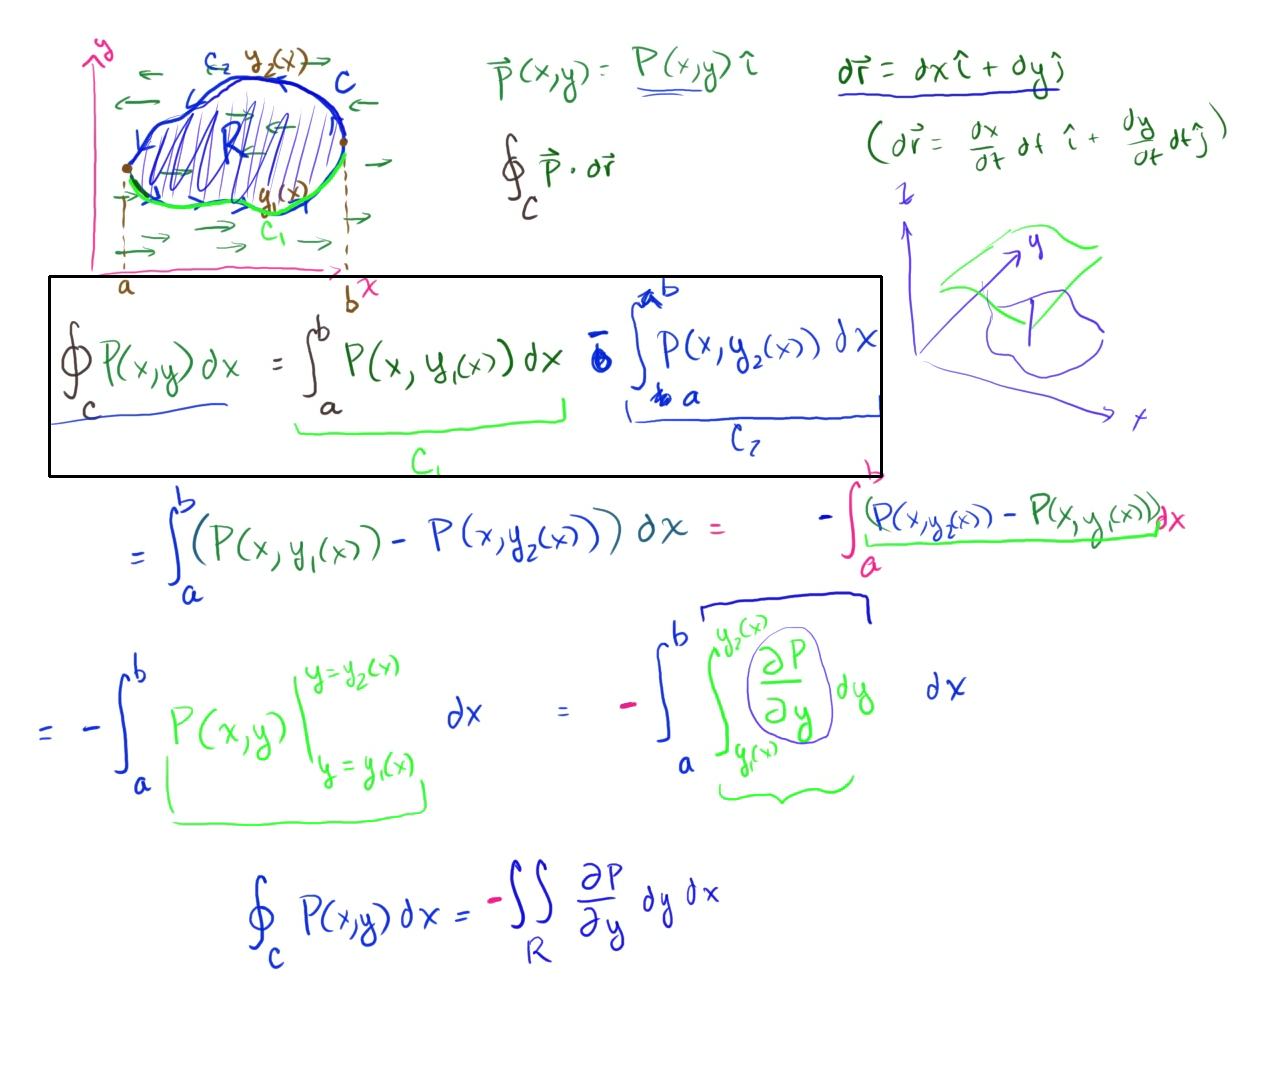 y
C₂ y₂(x)
C
R
y₁(x)
C₁
a
b x
P⃗(x,y) = P(x,y) î
∮_C P⃗ · dr⃗
dr⃗ = dx î + dy ĵ
(dr⃗ = dx/dt dt î + dy/dt dt ĵ)
z
y
x
∮_C P(x,y) dx = ∫_a^b P(x, y₁(x)) dx - ∫_a^b P(x, y₂(x)) dx
C₁ C₂
= ∫_a^b (P(x, y₁(x)) - P(x, y₂(x))) dx = - ∫_a^b (P(x, y₂(x)) - P(x, y₁(x))) dx
= - ∫_a^b P(x,y) |_{y = y₁(x)}^{y = y₂(x)} dx = - ∫_a^b ∫_{y₁(x)}^{y₂(x)} ∂P/∂y dy dx
∮_C P(x,y) dx = - ∬_R ∂P/∂y dy dx